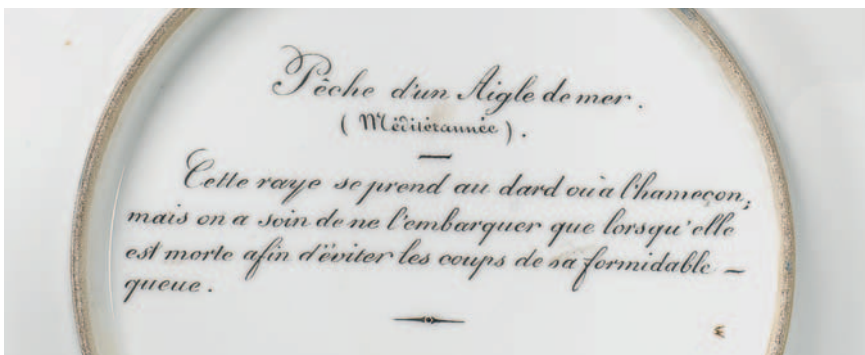 Pêche d'un Aigle de mer.
(Méditérannée).
Cette raye se prend au dard ou à l'hameçon,
mais on a soin de ne l'embarquer que lorsqu'elle
est morte afin d'éviter les coups de sa formidable –
queue.